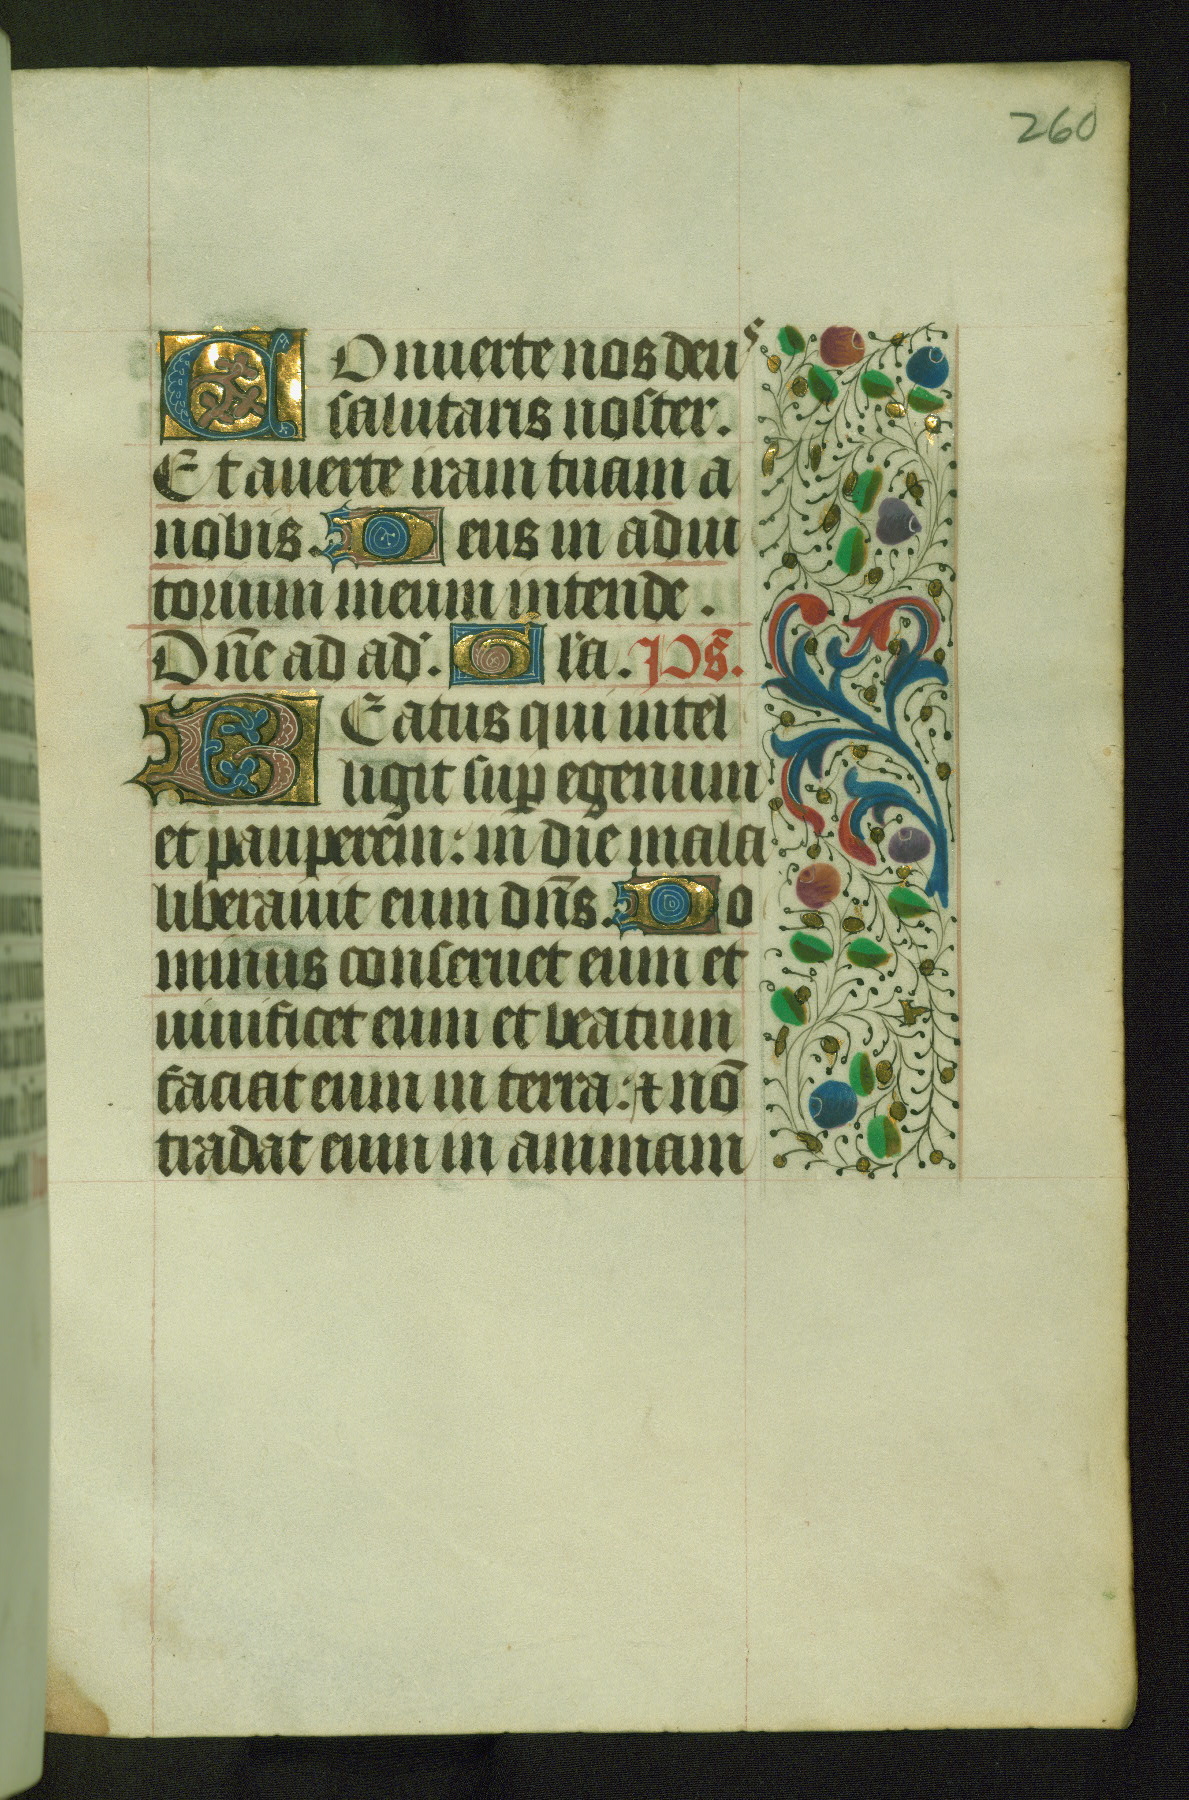 260
Conuerte nos deus
salutaris noster.
Et auerte iram tuam a
nobis. Deus in adiu
torium meum intende.
Dn̄e ad ad'. Gl'a. Ps̄.
Beatus qui intel
ligit suꝑ egenum
et pauperem: in die mala
liberauit eum dn̄s. Do
minus conseruet eum et
uiuificet eum et beatum
faciat eum in terra: ⁊ nō
tradat eum in animam